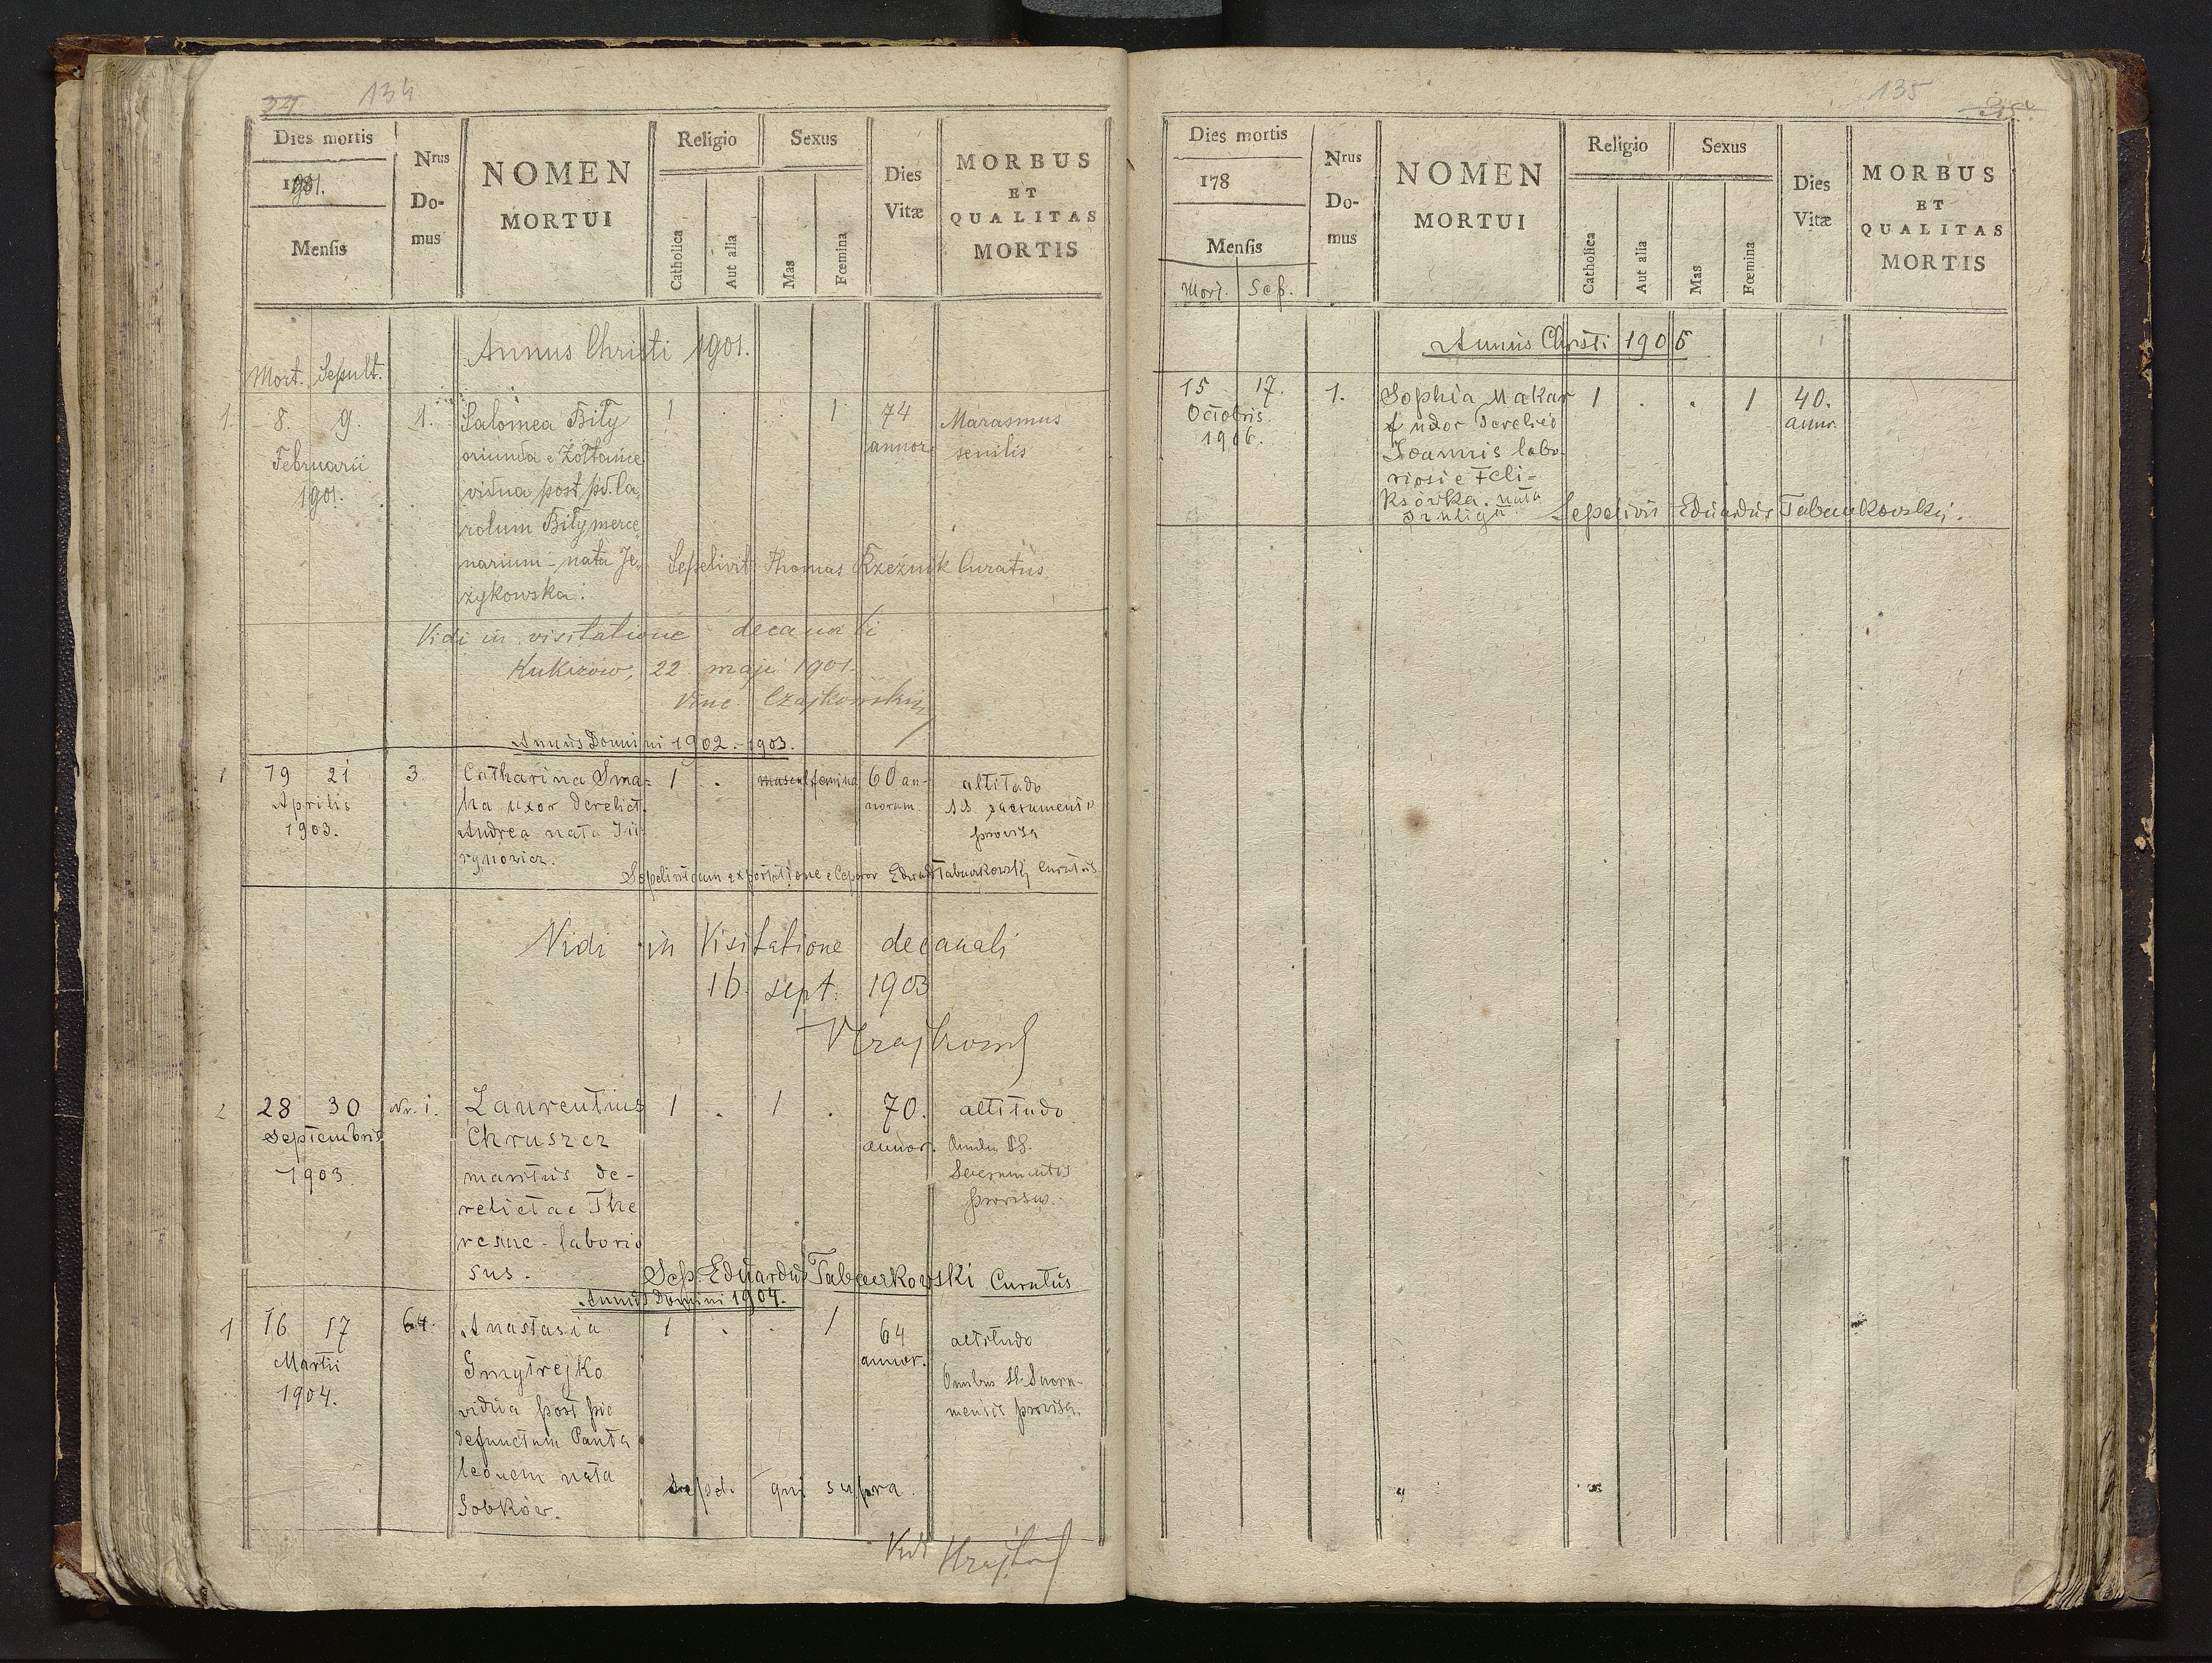 134
Dies mortis
1901.
Mensis
Nrus
Do-
mus
NOMEN
MORTUI
Religio
Catholica
Aut alia
Sexus
Mas
Fœmina
Dies
Vitæ
MORBUS
ET
QUALITAS
MORTIS
Annus Christi 1901.
Mort. Sepult.
1. 8. 9. 1. Salomea Biły 1 . . 1 74 Marasmus
Februarii oriunda e Żółtańce annor. senilis
1901. vidua post p.d. Ca,
rolum Biły merce
narium - nata Je,,
żykowska.
Sepelivit Thomas Rzeźnik Curatus
Vidi in visitatione decanali
Kukizów, 22 maji 1901.
Vinc. Czajkowski
Annus Domini 1902.-1903.
1 19 21 3. Catharina Sma- 1 . femina 60 an- altitudo
Aprilis ha uxor derelict. norum SS sacramentis
1903. Andrea nata Ju- provisa
rynowicz.
Sepelivit cum exportatione e Ceperov Eduard Tabaczkowski Curatus
Vidi in Visitatione decanali
16. sept. 1903
2 28 30 Nr. 1. Laurentius 1 . 1 . 70. altitudo
Septembris Chruszcz annor. Omnibus SS.
1903 maritus de- Sacramentis
relictae The provisus.
resae - laborio
sus.
Sep. Eduardus Tabaczkowski Curatus
Annus Domini 1904.
1 16 17 64. Anastasia 1 . . 1 64 altitudo
Martii Smytrejko annor. Omnibus SS. Sacra-
1904. vidua post pie mentis provisa.
defunctum Panta
leonem nata
Sobków.
Sepel. qui supra.
Vidi
135
Dies mortis
178
Mensis
Mort. Sep.
Nrus
Do-
mus
NOMEN
MORTUI
Religio
Catholica
Aut alia
Sexus
Mas
Fœmina
Dies
Vitæ
MORBUS
ET
QUALITAS
MORTIS
Annus Christi 1906
15 17. 1. Sophia Makar 1 . . 1 40.
Octobris uxor derelict annor.
1906. Joannis labo-
riosi e Feli-
ksówka. nata
Sepelivit Eduardus Tabaczkowski.